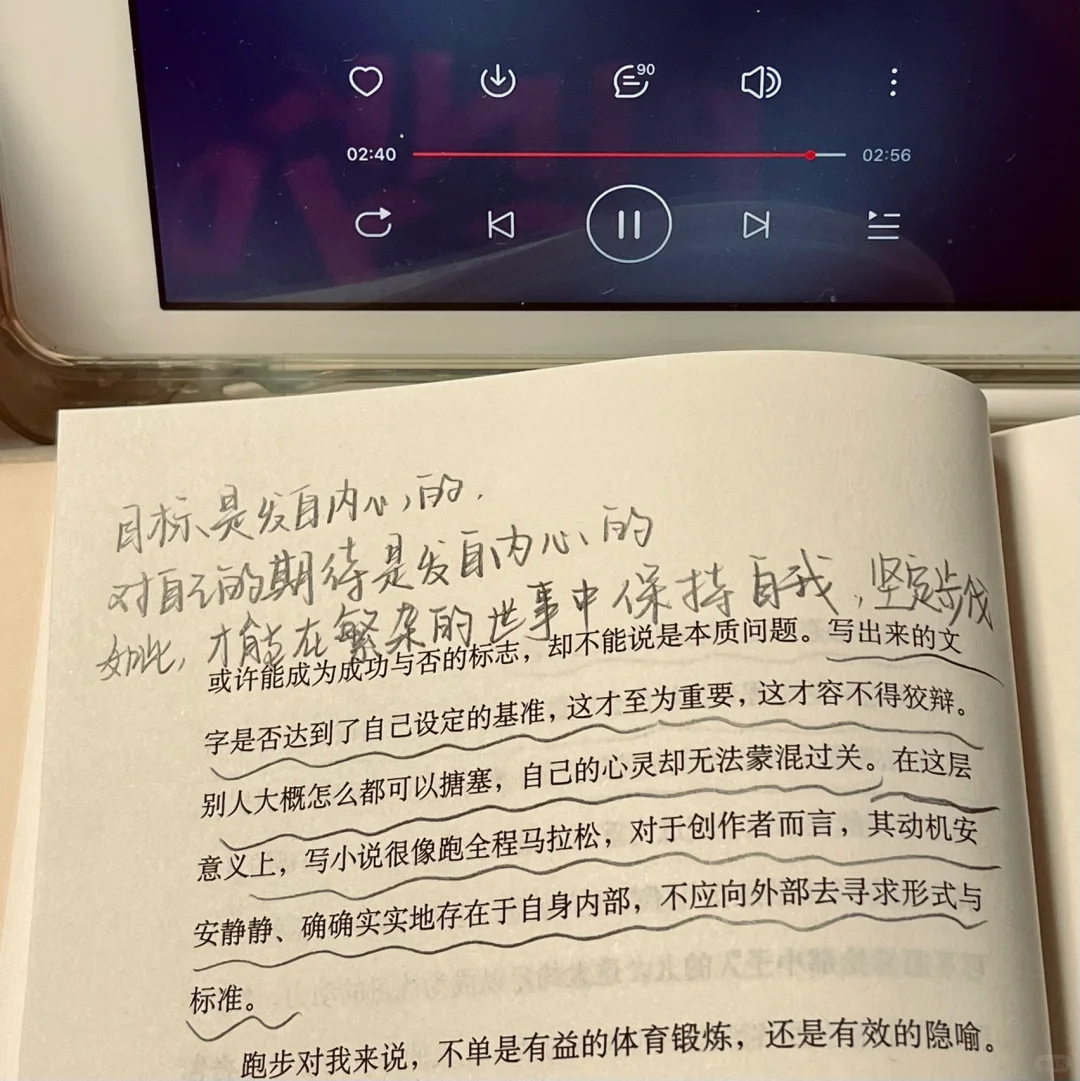 90
02:40
02:56
目标是发自内心的.
对自己的期待是发自内心的
如此,才能在繁杂的世事中保持自我,坚定步伐
或许能成为成功与否的标志，却不能说是本质问题。写出来的文
字是否达到了自己设定的基准，这才至为重要，这才容不得狡辩。
别人大概怎么都可以搪塞，自己的心灵却无法蒙混过关。在这层
意义上，写小说很像跑全程马拉松，对于创作者而言，其动机安
安静静、确确实实地存在于自身内部，不应向外部去寻求形式与
标准。
跑步对我来说，不单是有益的体育锻炼，还是有效的隐喻。